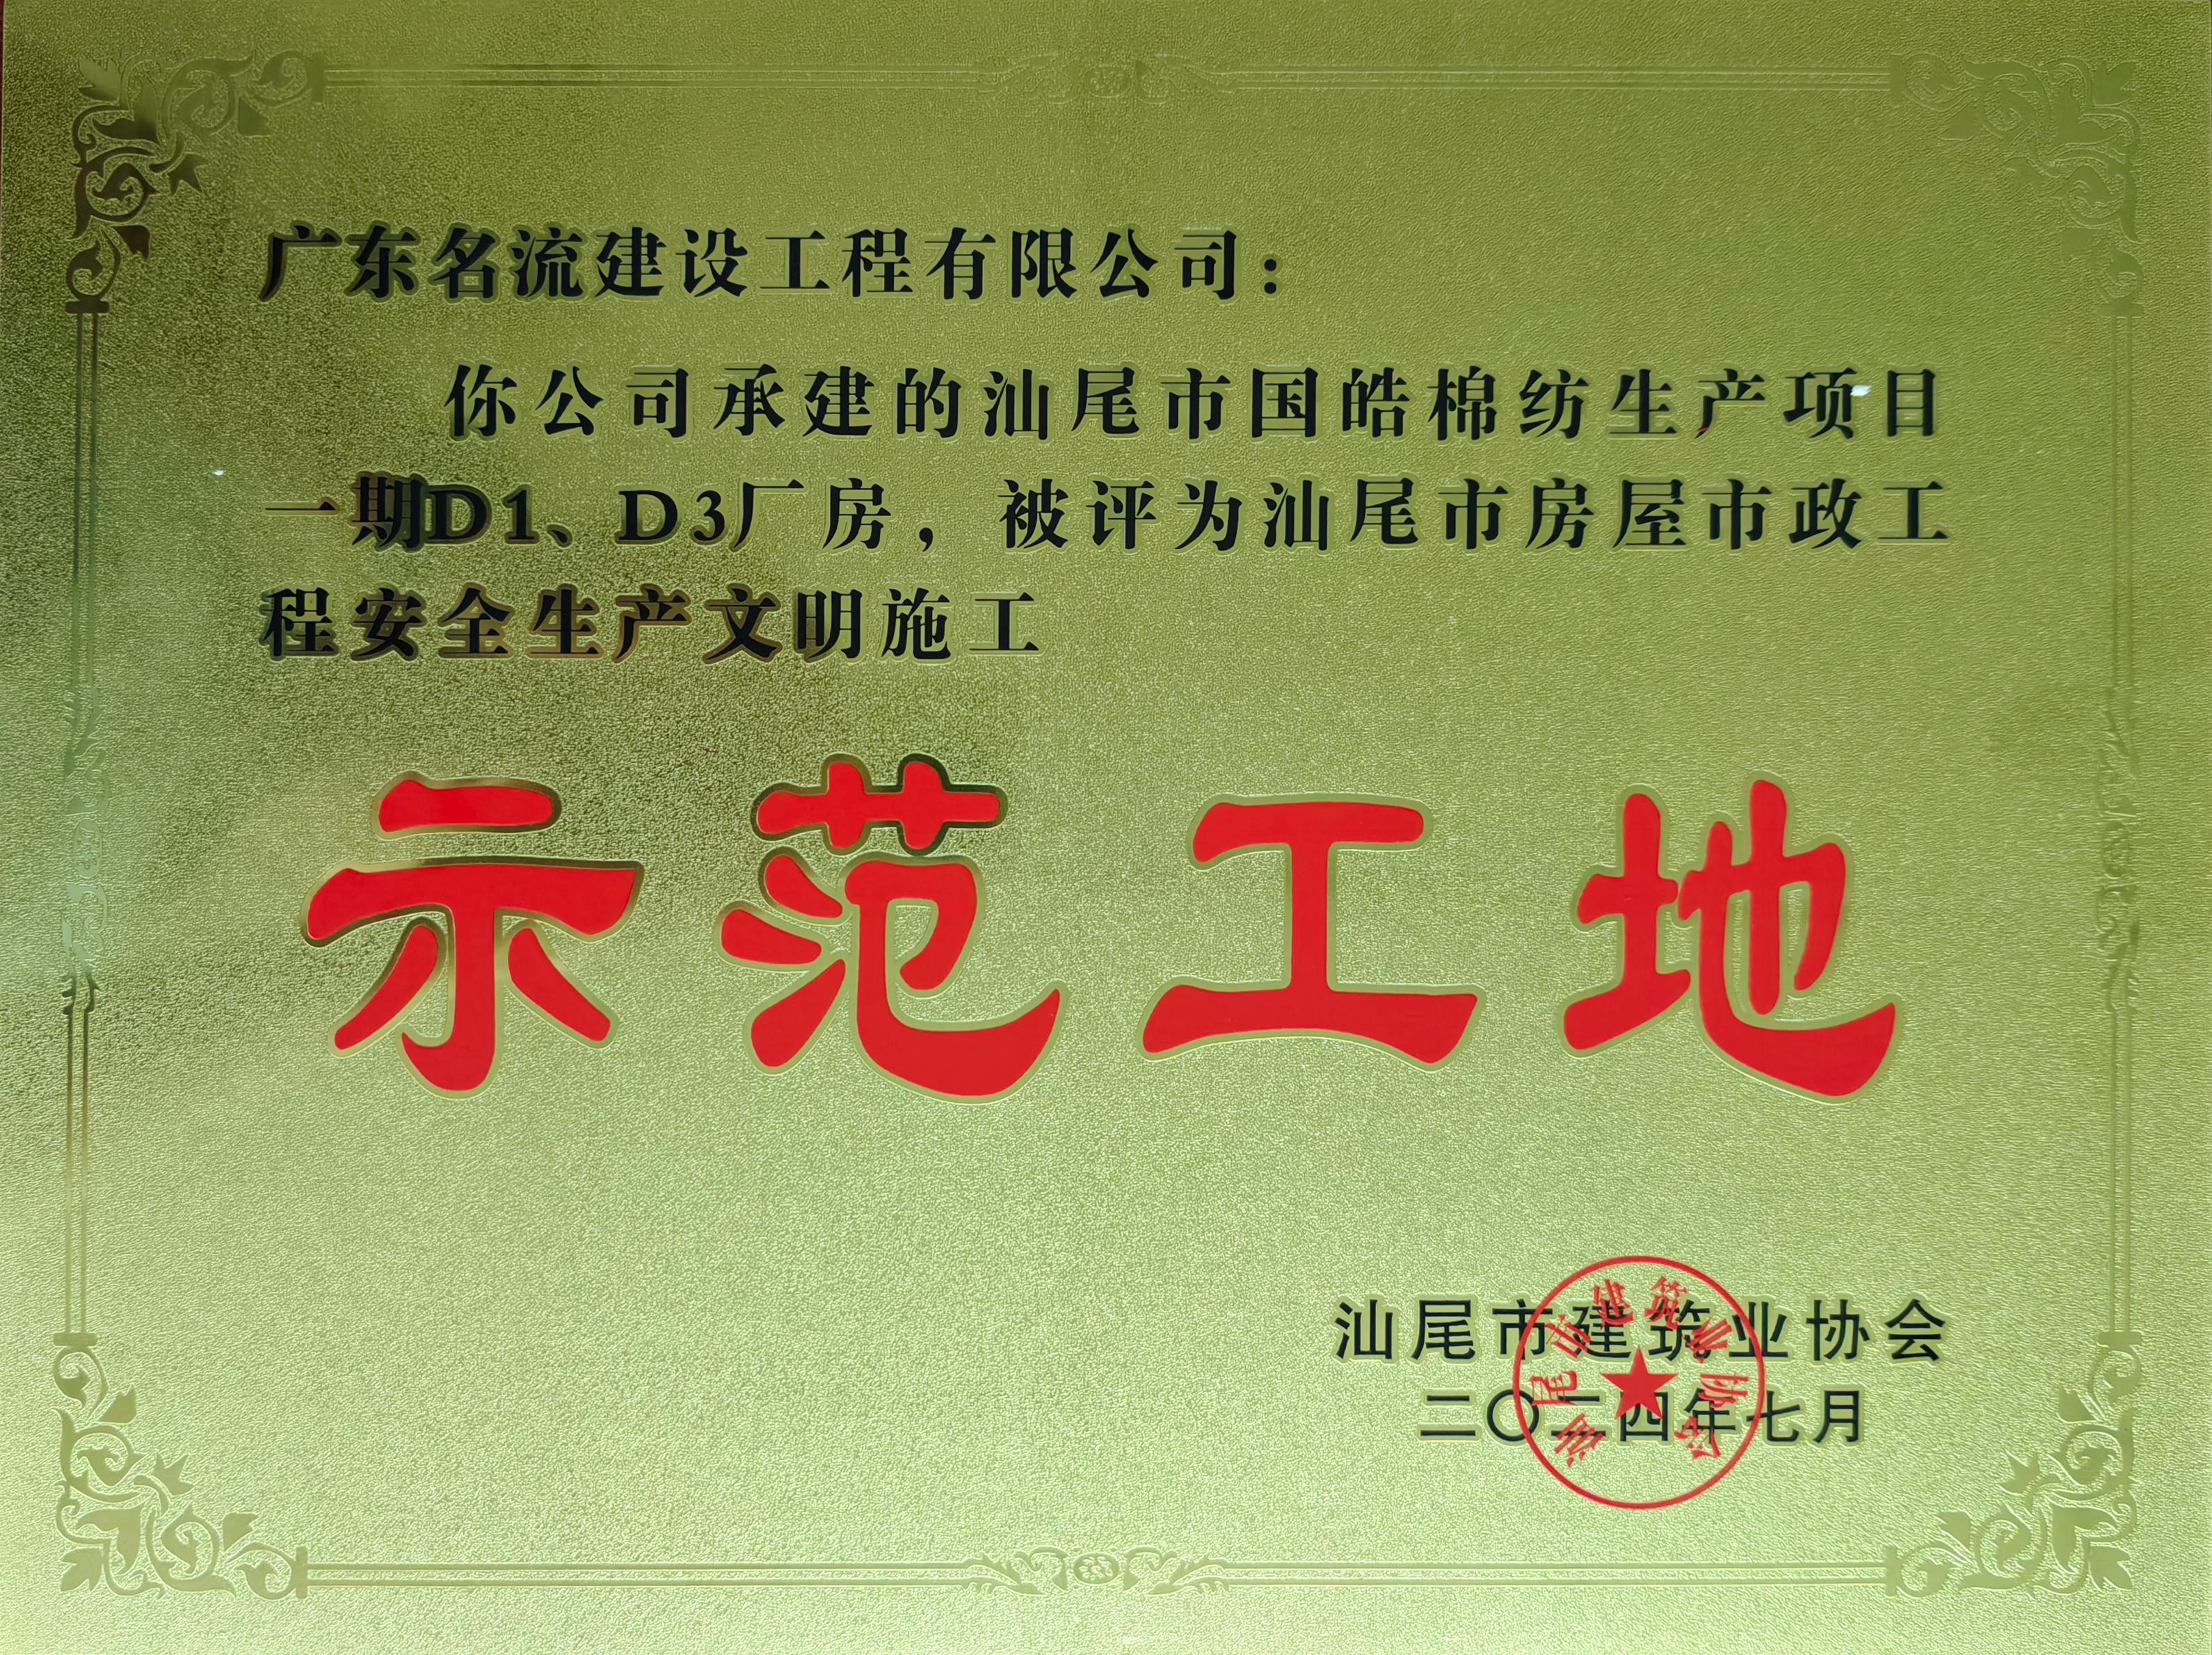 广东名流建设工程有限公司：
你公司承建的汕尾市国皓棉纺生产项目
一期D1、D3厂房，被评为汕尾市房屋市政工
程安全生产文明施工
示范工地
汕尾市建筑业协会
二〇二四年七月
汕尾市建筑业协会